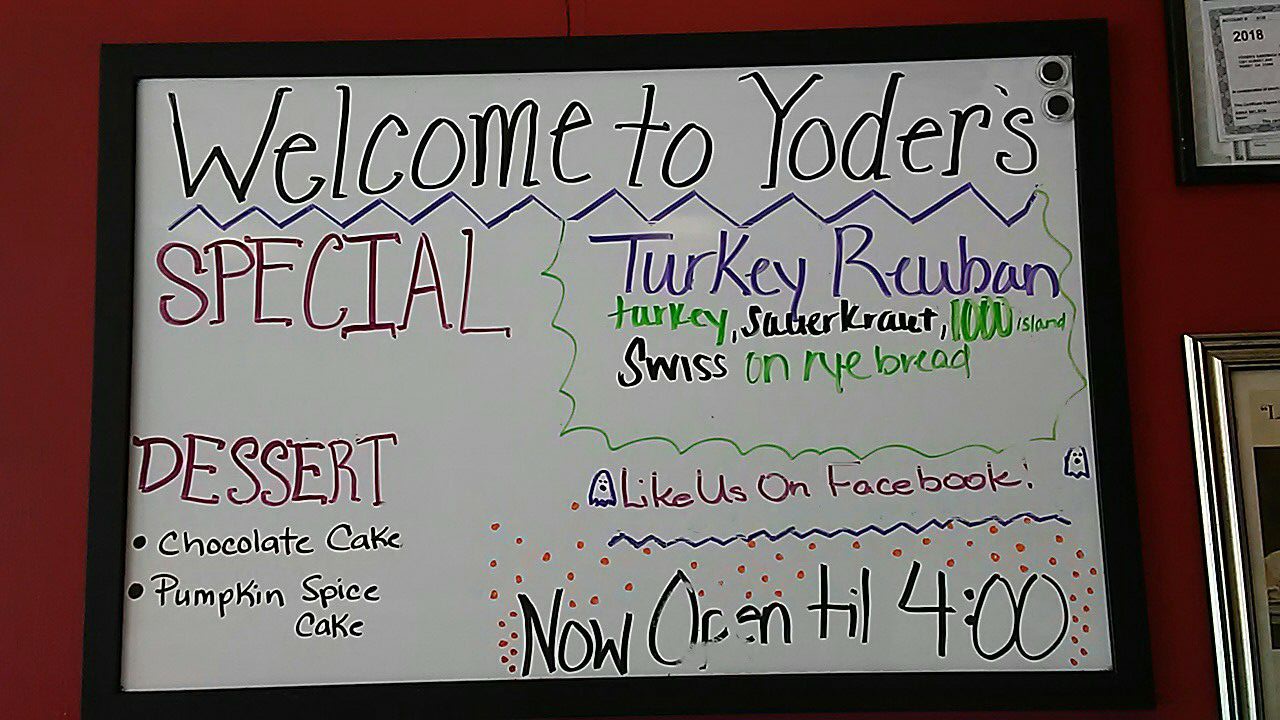 Welcome to Yoder's
SPECIAL
Turkey Reuban
turkey, Sauerkraut, 1000 island
Swiss on rye bread
DESSERT
• Chocolate Cake
• Pumpkin Spice
Cake
Like Us On Facebook!
Now Open til 4:00
2018